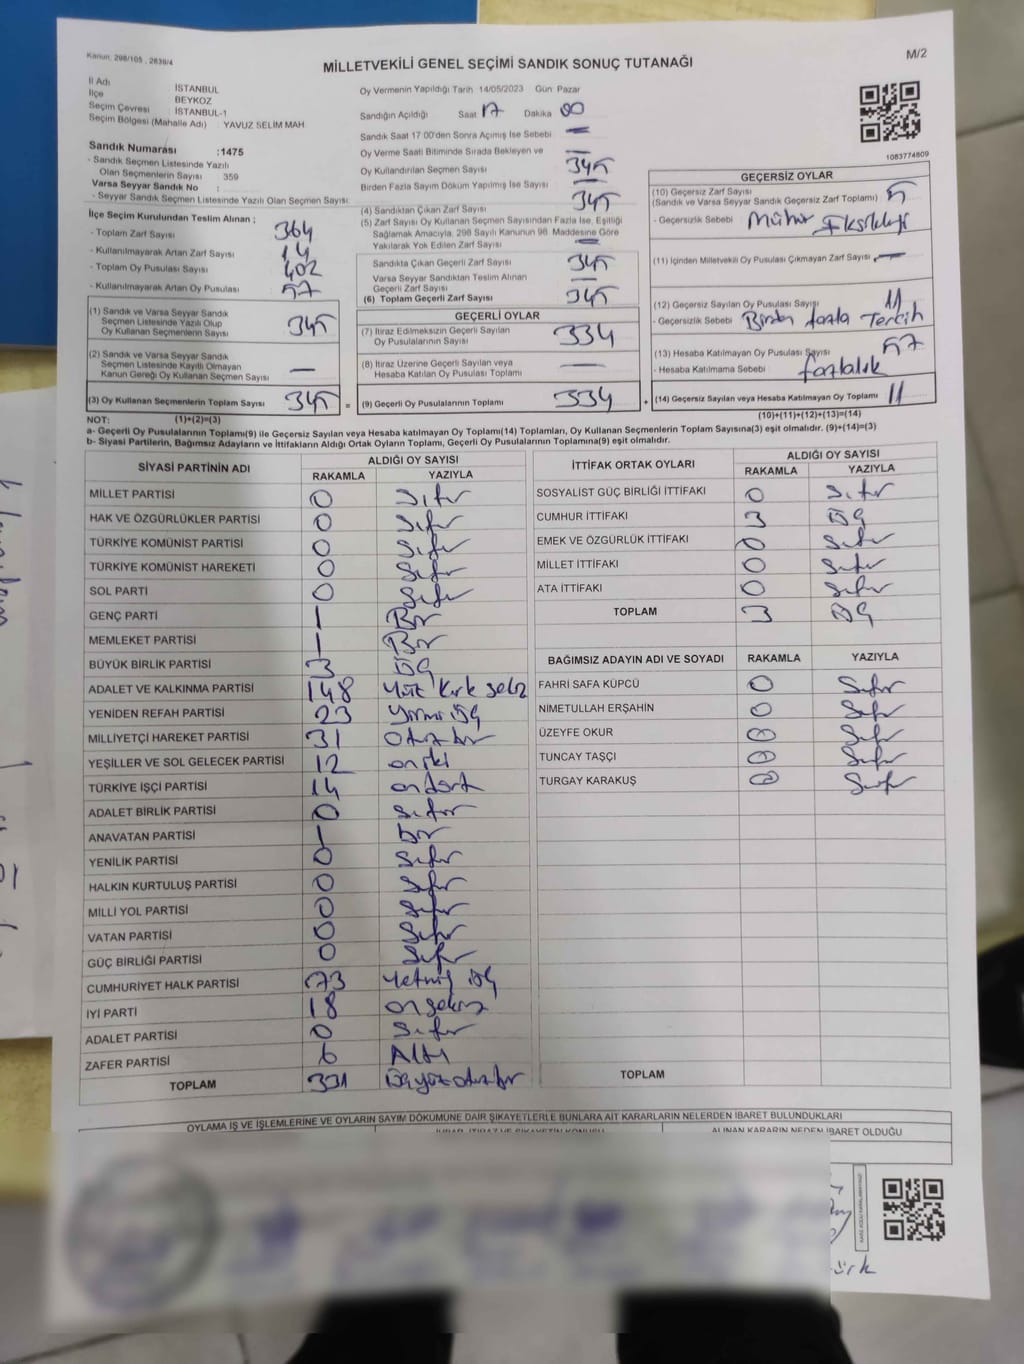 Kanun, 298/105 , 2839/4
M/2
MİLLETVEKİLİ GENEL SEÇİMİ SANDIK SONUÇ TUTANAĞI
İl Adı : İSTANBUL
İlçe : BEYKOZ
Seçim Çevresi : İSTANBUL-1
Seçim Bölgesi (Mahalle Adı) : YAVUZ SELİM MAH
Sandık Numarası :1475
- Sandık Seçmen Listesinde Yazılı
Olan Seçmenlerin Sayısı : 359
Varsa Seyyar Sandık No :
- Seyyar Sandık Seçmen Listesinde Yazılı Olan Seçmen Sayısı:
İlçe Seçim Kurulundan Teslim Alınan ;
- Toplam Zarf Sayısı 364
- Kullanılmayarak Artan Zarf Sayısı 14
- Toplam Oy Pusulası Sayısı 402
- Kullanılmayarak Artan Oy Pusulası 57
(1) Sandık ve Varsa Seyyar Sandık
Seçmen Listesinde Yazılı Olup
Oy Kullanan Seçmenlerin Sayısı 345
(2) Sandık ve Varsa Seyyar Sandık
Seçmen Listesinde Kayıtlı Olmayan
Kanun Gereği Oy Kullanan Seçmen Sayısı —
(3) Oy Kullanan Seçmenlerin Toplam Sayısı 345 =
Oy Vermenin Yapıldığı Tarih 14/05/2023 Gün Pazar
Sandığın Açıldığı Saat 17 Dakika 00
Sandık Saat 17 00'den Sonra Açılmış İse Sebebi —
Oy Verme Saati Bitiminde Sırada Bekleyen ve —
Oy Kullandırılan Seçmen Sayısı 345
Birden Fazla Sayım Döküm Yapılmış İse Sayısı —
(4) Sandıktan Çıkan Zarf Sayısı 345
(5) Zarf Sayısı Oy Kullanan Seçmen Sayısından Fazla İse, Eşitliği
Sağlamak Amacıyla, 298 Sayılı Kanunun 98. Maddesine Göre
Yakılarak Yok Edilen Zarf Sayısı —
Sandıkta Çıkan Geçerli Zarf Sayısı 345
Varsa Seyyar Sandıktan Teslim Alınan
Geçerli Zarf Sayısı —
(6) Toplam Geçerli Zarf Sayısı 345
GEÇERLİ OYLAR
(7) İtiraz Edilmeksizin Geçerli Sayılan
Oy Pusulalarının Sayısı 334
(8) İtiraz Üzerine Geçerli Sayılan veya
Hesaba Katılan Oy Pusulası Toplamı —
(9) Geçerli Oy Pusulalarının Toplamı 334 +
1083774809
GEÇERSİZ OYLAR
(10) Geçersiz Zarf Sayısı 5
(Sandık ve Varsa Seyyar Sandık Geçersiz Zarf Toplamı)
- Geçersizlik Sebebi Mühür Eksikliği
(11) İçinden Milletvekili Oy Pusulası Çıkmayan Zarf Sayısı —
(12) Geçersiz Sayılan Oy Pusulası Sayısı 11
- Geçersizlik Sebebi Birden fazla Tercih
(13) Hesaba Katılmayan Oy Pusulası Sayısı 57
- Hesaba Katılmama Sebebi fazlalık
(14) Geçersiz Sayılan veya Hesaba Katılmayan Oy Toplamı 11
NOT: (1)+(2)=(3)
(10)+(11)+(12)+(13)=(14)
a- Geçerli Oy Pusulalarının Toplamı(9) ile Geçersiz Sayılan veya Hesaba katılmayan Oy Toplamı(14) Toplamları, Oy Kullanan Seçmenlerin Toplam Sayısına(3) eşit olmalıdır. (9)+(14)=(3)
b- Siyasi Partilerin, Bağımsız Adayların ve İttifakların Aldığı Ortak Oyların Toplamı, Geçerli Oy Pusulalarının Toplamına(9) eşit olmalıdır.
SİYASİ PARTİNİN ADI ALDIĞI OY SAYISI
RAKAMLA YAZIYLA
MİLLET PARTİSİ 0 Sıfır
HAK VE ÖZGÜRLÜKLER PARTİSİ 0 Sıfır
TÜRKİYE KOMÜNİST PARTİSİ 0 Sıfır
TÜRKİYE KOMÜNİST HAREKETİ 0 Sıfır
SOL PARTİ 0 Sıfır
GENÇ PARTİ 1 Bir
MEMLEKET PARTİSİ 1 Bir
BÜYÜK BİRLİK PARTİSİ 3 üç
ADALET VE KALKINMA PARTİSİ 148 Yüz Kırk sekiz
YENİDEN REFAH PARTİSİ 23 Yirmi üç
MİLLİYETÇİ HAREKET PARTİSİ 31 Otuz bir
YEŞİLLER VE SOL GELECEK PARTİSİ 12 oniki
TÜRKİYE İŞÇİ PARTİSİ 14 ondört
ADALET BİRLİK PARTİSİ 0 Sıfır
ANAVATAN PARTİSİ 1 bir
YENİLİK PARTİSİ 0 Sıfır
HALKIN KURTULUŞ PARTİSİ 0 Sıfır
MİLLİ YOL PARTİSİ 0 Sıfır
VATAN PARTİSİ 0 Sıfır
GÜÇ BİRLİĞİ PARTİSİ 0 Sıfır
CUMHURİYET HALK PARTİSİ 73 Yetmiş üç
İYİ PARTİ 18 onsekiz
ADALET PARTİSİ 0 Sıfır
ZAFER PARTİSİ 6 Altı
TOPLAM 331 üçyüz otuz bir
İTTİFAK ORTAK OYLARI ALDIĞI OY SAYISI
RAKAMLA YAZIYLA
SOSYALİST GÜÇ BİRLİĞİ İTTİFAKI 0 Sıfır
CUMHUR İTTİFAKI 3 üç
EMEK VE ÖZGÜRLÜK İTTİFAKI 0 Sıfır
MİLLET İTTİFAKI 0 Sıfır
ATA İTTİFAKI 0 Sıfır
TOPLAM 3 üç
BAĞIMSIZ ADAYIN ADI VE SOYADI RAKAMLA YAZIYLA
FAHRİ SAFA KÜPCÜ 0 Sıfır
NİMETULLAH ERŞAHİN 0 Sıfır
ÜZEYFE OKUR 0 Sıfır
TUNCAY TAŞÇI 0 Sıfır
TURGAY KARAKUŞ 0 Sıfır
TOPLAM
OYLAMA İŞ VE İŞLEMLERİNE VE OYLARIN SAYIM DÖKÜMÜNE DAİR ŞİKAYETLERLE BUNLARA AİT KARARLARIN NELERDEN İBARET BULUNDUKLARI
ALINAN KARARIN NEDEN İBARET OLDUĞU